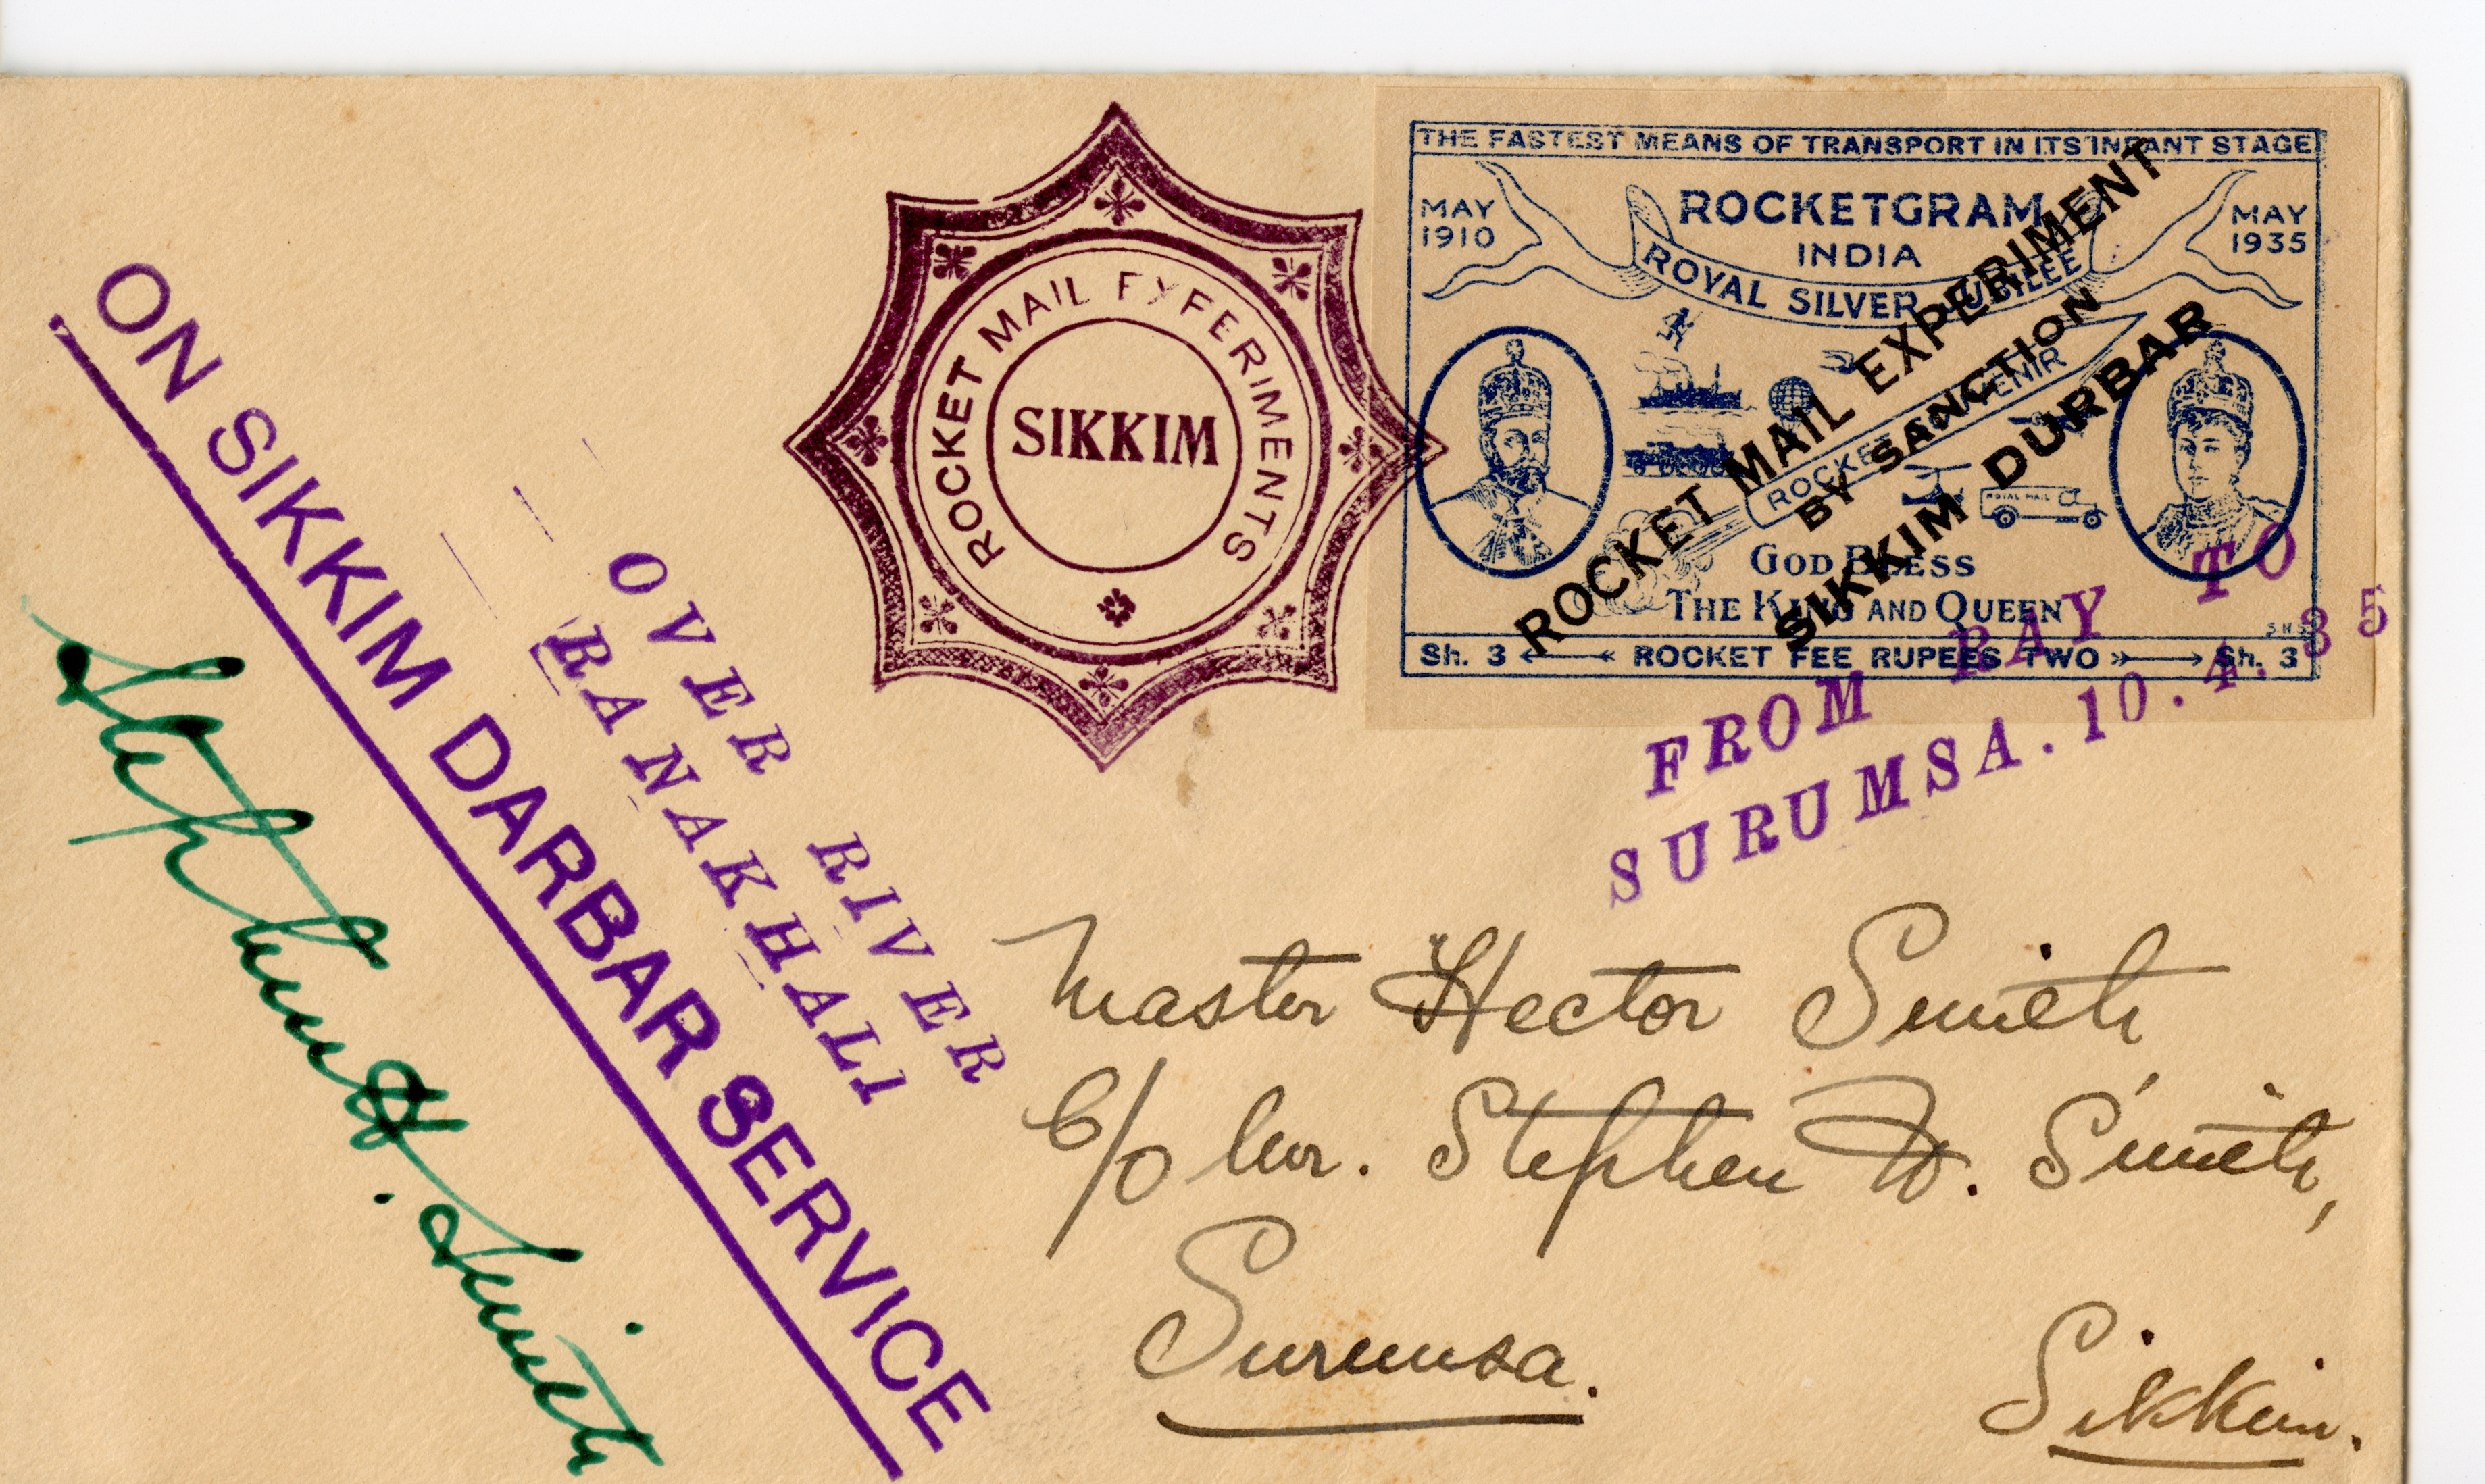 ON SIKKIM DARBAR SERVICE
Stephen H. Smith
OVER RIVER
RANAKHALI
ROCKET MAIL EXPERIMENTS
SIKKIM
THE FASTEST MEANS OF TRANSPORT IN ITS INFANT STAGE
MAY 1910
ROCKETGRAM
INDIA
MAY 1935
ROYAL SILVER JUBILEE
ROCKET SOUVENIR
ROYAL MAIL
GOD BLESS
THE KING AND QUEEN
SHS
Sh. 3 ROCKET FEE RUPEES TWO Sh. 3
ROCKET MAIL EXPERIMENT
BY SANCTION
SIKKIM DURBAR
FROM RAY TO
SURUMSA. 10. 4. 35
Master Hector Smith
C/o Mr. Stephen H. Smith,
Surumsa.
Sikkim.